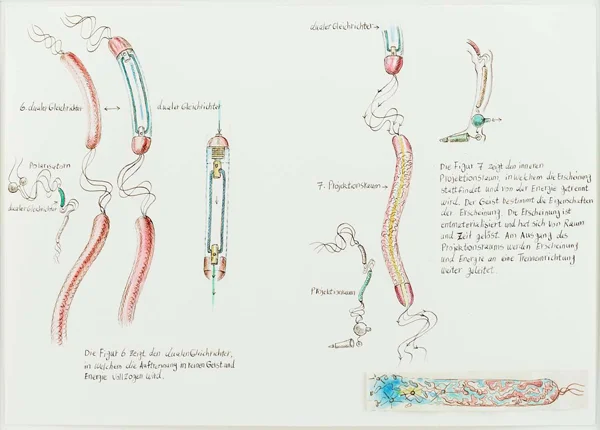 6. dualer Gleichrichter
dualer Gleichrichter
Polarisation
dualer Gleichrichter
Die Figur 6 zeigt den dualen Gleichrichter,
in welchem die Auftrennung in reinen Geist und
Energie vollzogen wird.
dualer Gleichrichter
7. Projektionsraum
Projektionsraum
Die Figur 7 zeigt den inneren
Projektionsraum, in welchem die Erscheinung
stattfindet und von der Energie getrennt
wird. Der Geist bestimmt die Eigenschaften
der Erscheinung. Die Erscheinung ist
entmaterialisiert und hat sich von Raum
und Zeit gelöst. Am Ausgang des
Projektionsraums werden Erscheinung
und Energie an eine Trenneinrichtung
weiter geleitet.